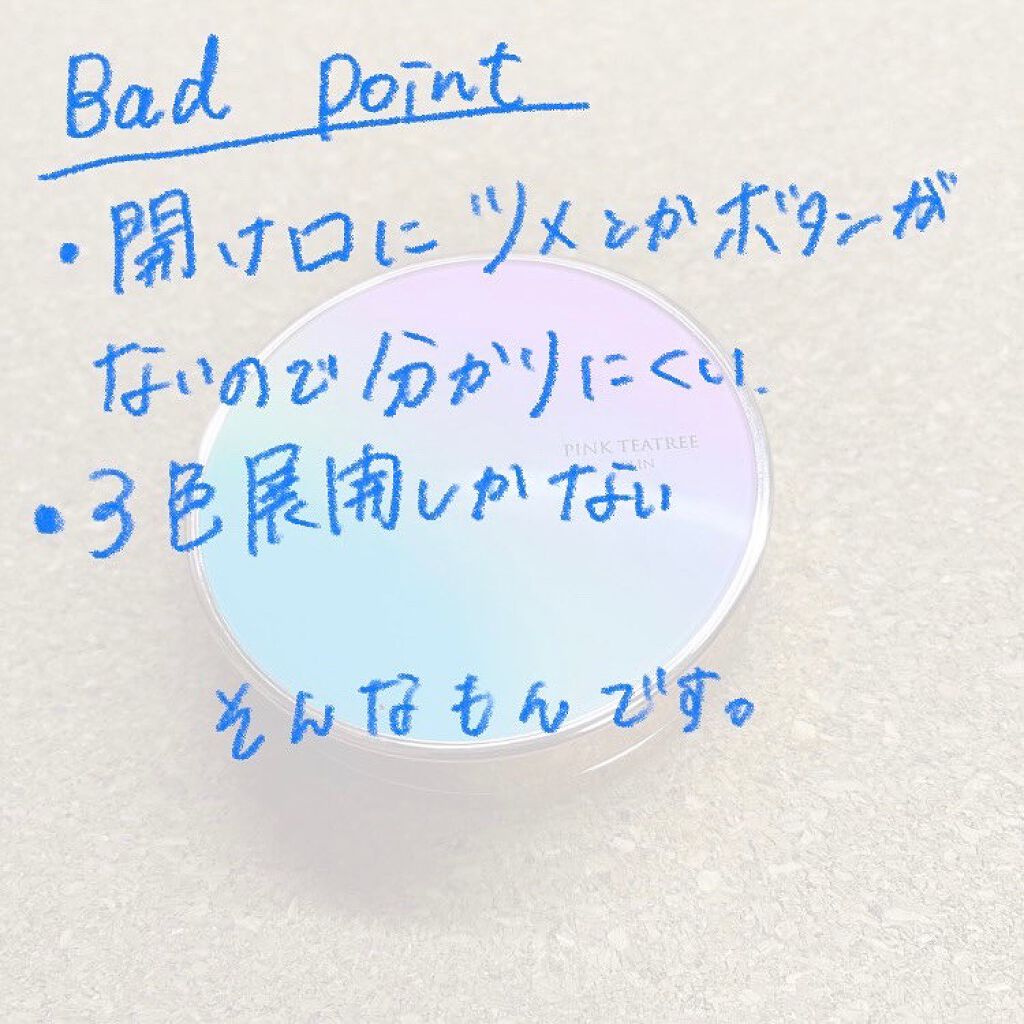 Bad point
・開け口にツメとかボタンが
ないので分かりにくい.
PINK TEATREE
・3色展開しかない
そんなもんです。